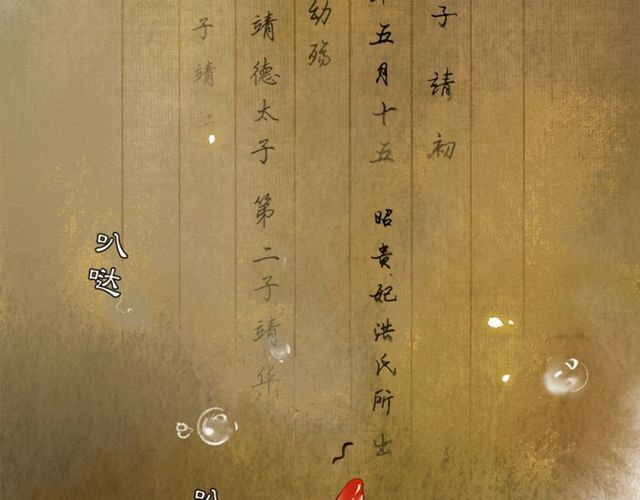 子 靖 初
五月十五 昭贵妃洪氏所出
幼殇
靖德太子 第二子靖华
子靖
叭哒
叭